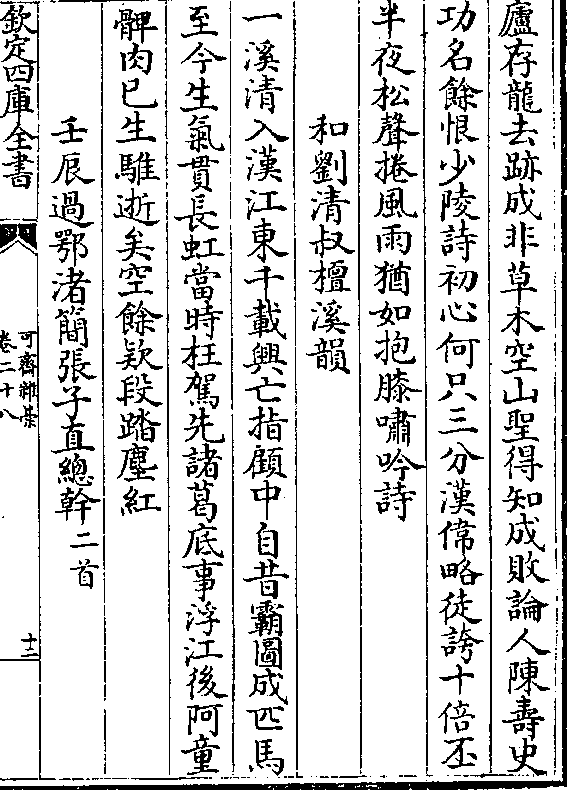 廬存龍去跡成非草木空山聖得知成敗論人陳壽史
功名餘恨少陵詩初心何只三分漢偉略徒誇十倍丕
半夜松聲捲風雨猶如抱膝嘯吟詩
和劉清叔檀溪韻
一溪清入漢江東千載興亡指顧中自昔霸圖成匹馬
至今生氣貫長虹當時枉駕先諸葛底事浮江後阿童
髀肉已生騅逝矣空餘欵段踏塵紅
壬辰過鄂渚簡張子直總幹二首
欽定四庫全書
可齋雜藁
卷二十八
十二